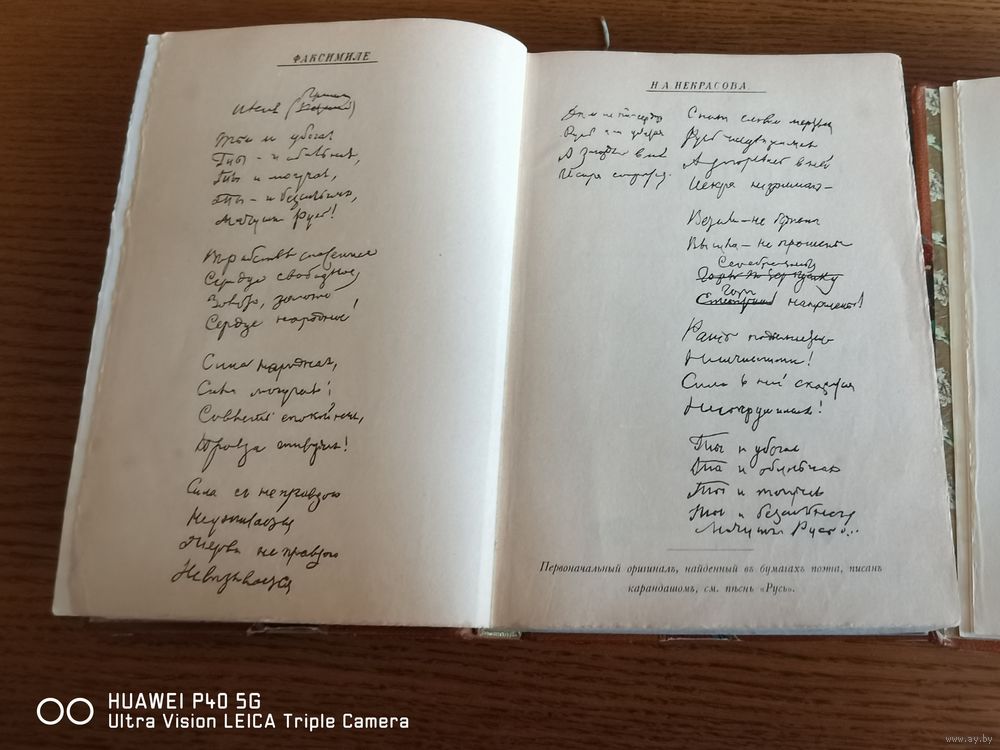 ФАКСИМИЛЕ
Ты и убогая
Ты - и обильная,
Ты и могучая,
Ты - и безсильная,
Матушка Русь!
Въ рабствѣ спасенное
Сердце свободное
Золото, золото
Сердце народное!
Сила народная,
Сила могучая;
Совѣсть спокойная,
Правда живучая!
Сила съ неправдою
Неуживается
Жертва неправдою
Невызывается
НА НЕКРАСОВА
Русь
А въ ней
Искра
Русь недвижимая
А въ ней
Искра незримая -
Встали - не бужены
Вышла - не прошены
Горы
Рать подымается
Неисчислимая!
Сила въ ней скажется
Несокрушимая!
Ты и убогая
Ты и обильная
Ты и могучая
Ты и безсильная
Матушка Русь!..
Первоначальный оригиналъ, найденный въ бумагахъ поэта, писанъ
карандашомъ, см. пѣснь «Русь».
HUAWEI P40 5G
Ultra Vision LEICA Triple Camera
www.ay.by